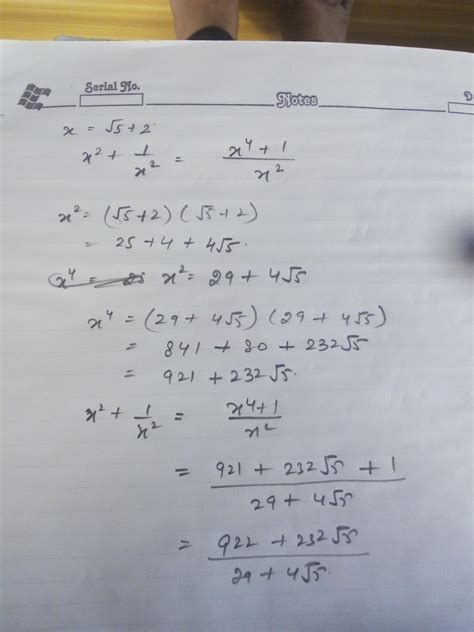 Serial No.
Notes
D
x = √5 + 2
x² + 1/x² = x⁴ + 1/x²
x² = (√5 + 2) (√5 + 2)
= 25 + 4 + 4√5.
x⁴ = 25 x² = 29 + 4√5
x⁴ = (29 + 4√5) (29 + 4√5)
= 841 + 80 + 232√5
= 921 + 232√5.
x² + 1/x² = x⁴+1/x²
= 921 + 232√5 + 1/29 + 4√5
= 922 + 232√5/29 + 4√5.